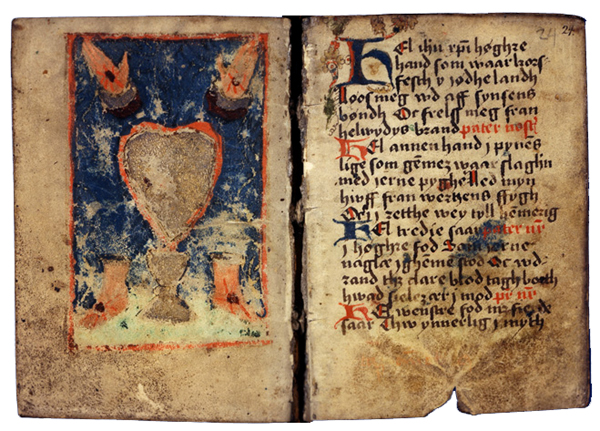 24 24
HEl ihu xpi høghre
hand som waar kors
festh y jødhelandh
loos meg wd aff synsens
bondh Oc frelss meg fran
helwydys brand pater nost
HEl annen hand j pynes
lige som gēmez waar slaghn
med jerne pyghe led myn
fran werkens stygh
Oc j zetthe wey tyll hēmerig
HEl tredie saar pater nr
j høghre fod Sam jerne
naglæ j ghēme stod Oc wd
rand thz clare blod tagh borth
hwad sielez ar j mod pr nr
HEl wenstre fod mz fierde
saar Thw ynnerlig j myth